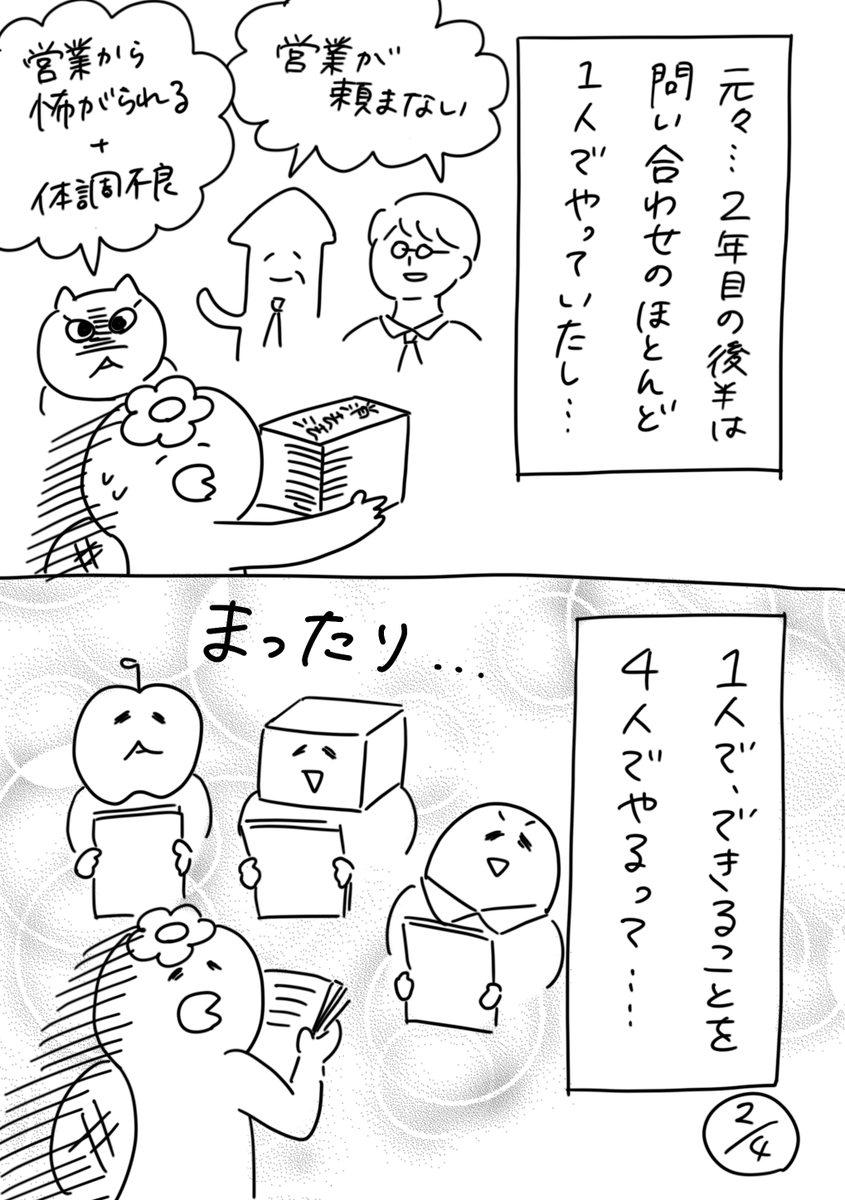 元々…2年目の後半は
問い合わせのほとんど
1人でやっていたし…
営業が
頼まない
営業から
怖がられる
+
体調不良
1人で、できることを
4人でやるって……
まったり...
2/4